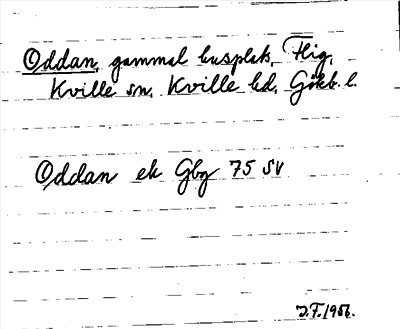 Oddan, gammal husplats, Flig,
Kville sn. Kville hd. Göteb. l.
Oddan ek Gbg 75 SV
J.F. 1956.